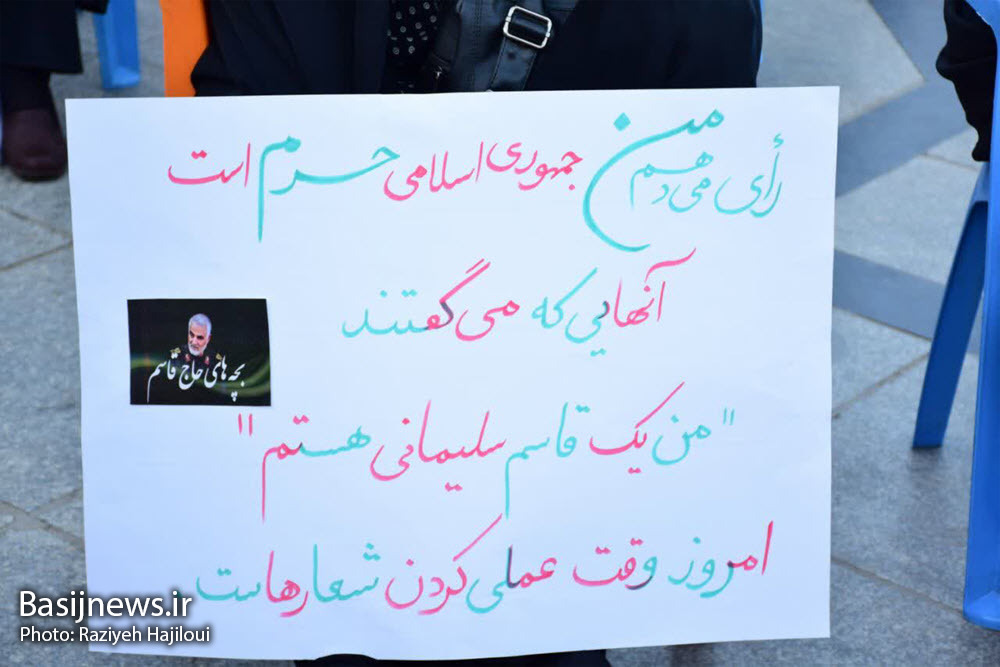 من رأی می‌دهم جمهوری اسلامی حرم است
آنهایی که می گفتند
"من یک قاسم سلیمانی هستم"
امروز وقت عملی کردن شعارهاست
بچه های حاج قاسم
Basijnews.ir
Photo: Raziyeh Hajiloui